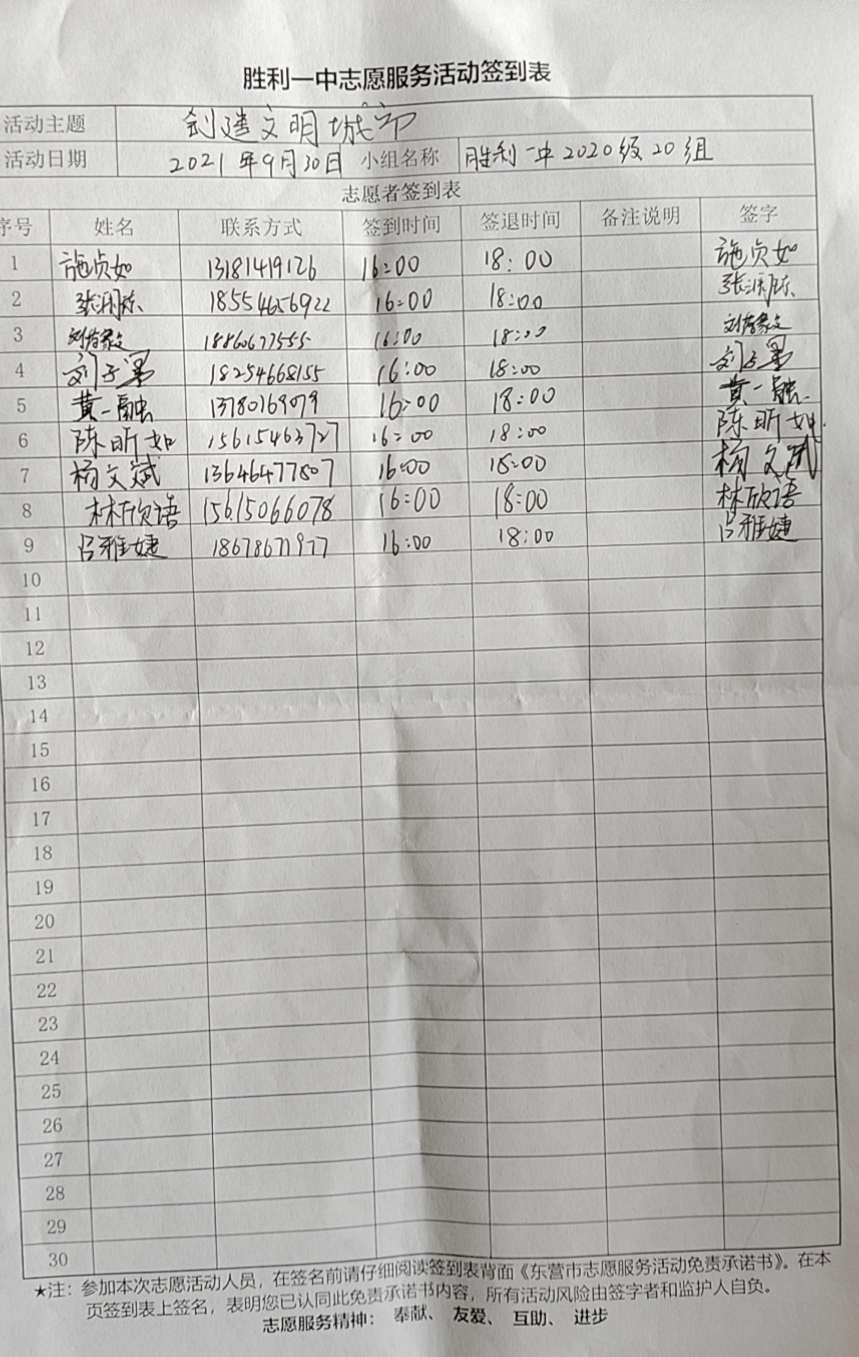 胜利一中志愿服务活动签到表
活动主题 创建文明城市
活动日期 2021年9月30日 小组名称 胜利一中2020级20组
志愿者签到表
序号 姓名 联系方式 签到时间 签退时间 备注说明 签字
1 施贞如 13181419126 16:00 18:00 施贞如
2 18554656922 16:00 18:00
3 18860677555 16:00 18:00
4 刘子墨 18254668155 16:00 18:00 刘子墨
5 黄一融 13780169079 16:00 18:00 黄一融
6 陈昕如 15615463727 16:00 18:00 陈昕如
7 杨文斌 13646477807 16:00 18:00 杨文斌
8 林欣语 15615066078 16:00 18:00 林欣语
9 吕雅婕 18678671977 16:00 18:00 吕雅婕
10
11
12
13
14
15
16
17
18
19
20
21
22
23
24
25
26
27
28
29
30
★注：参加本次志愿活动人员，在签名前请仔细阅读签到表背面《东营市志愿服务活动免责承诺书》。在本
页签到表上签名，表明您已认同此免责承诺书内容，所有活动风险由签字者和监护人自负。
志愿服务精神： 奉献、 友爱、 互助、 进步